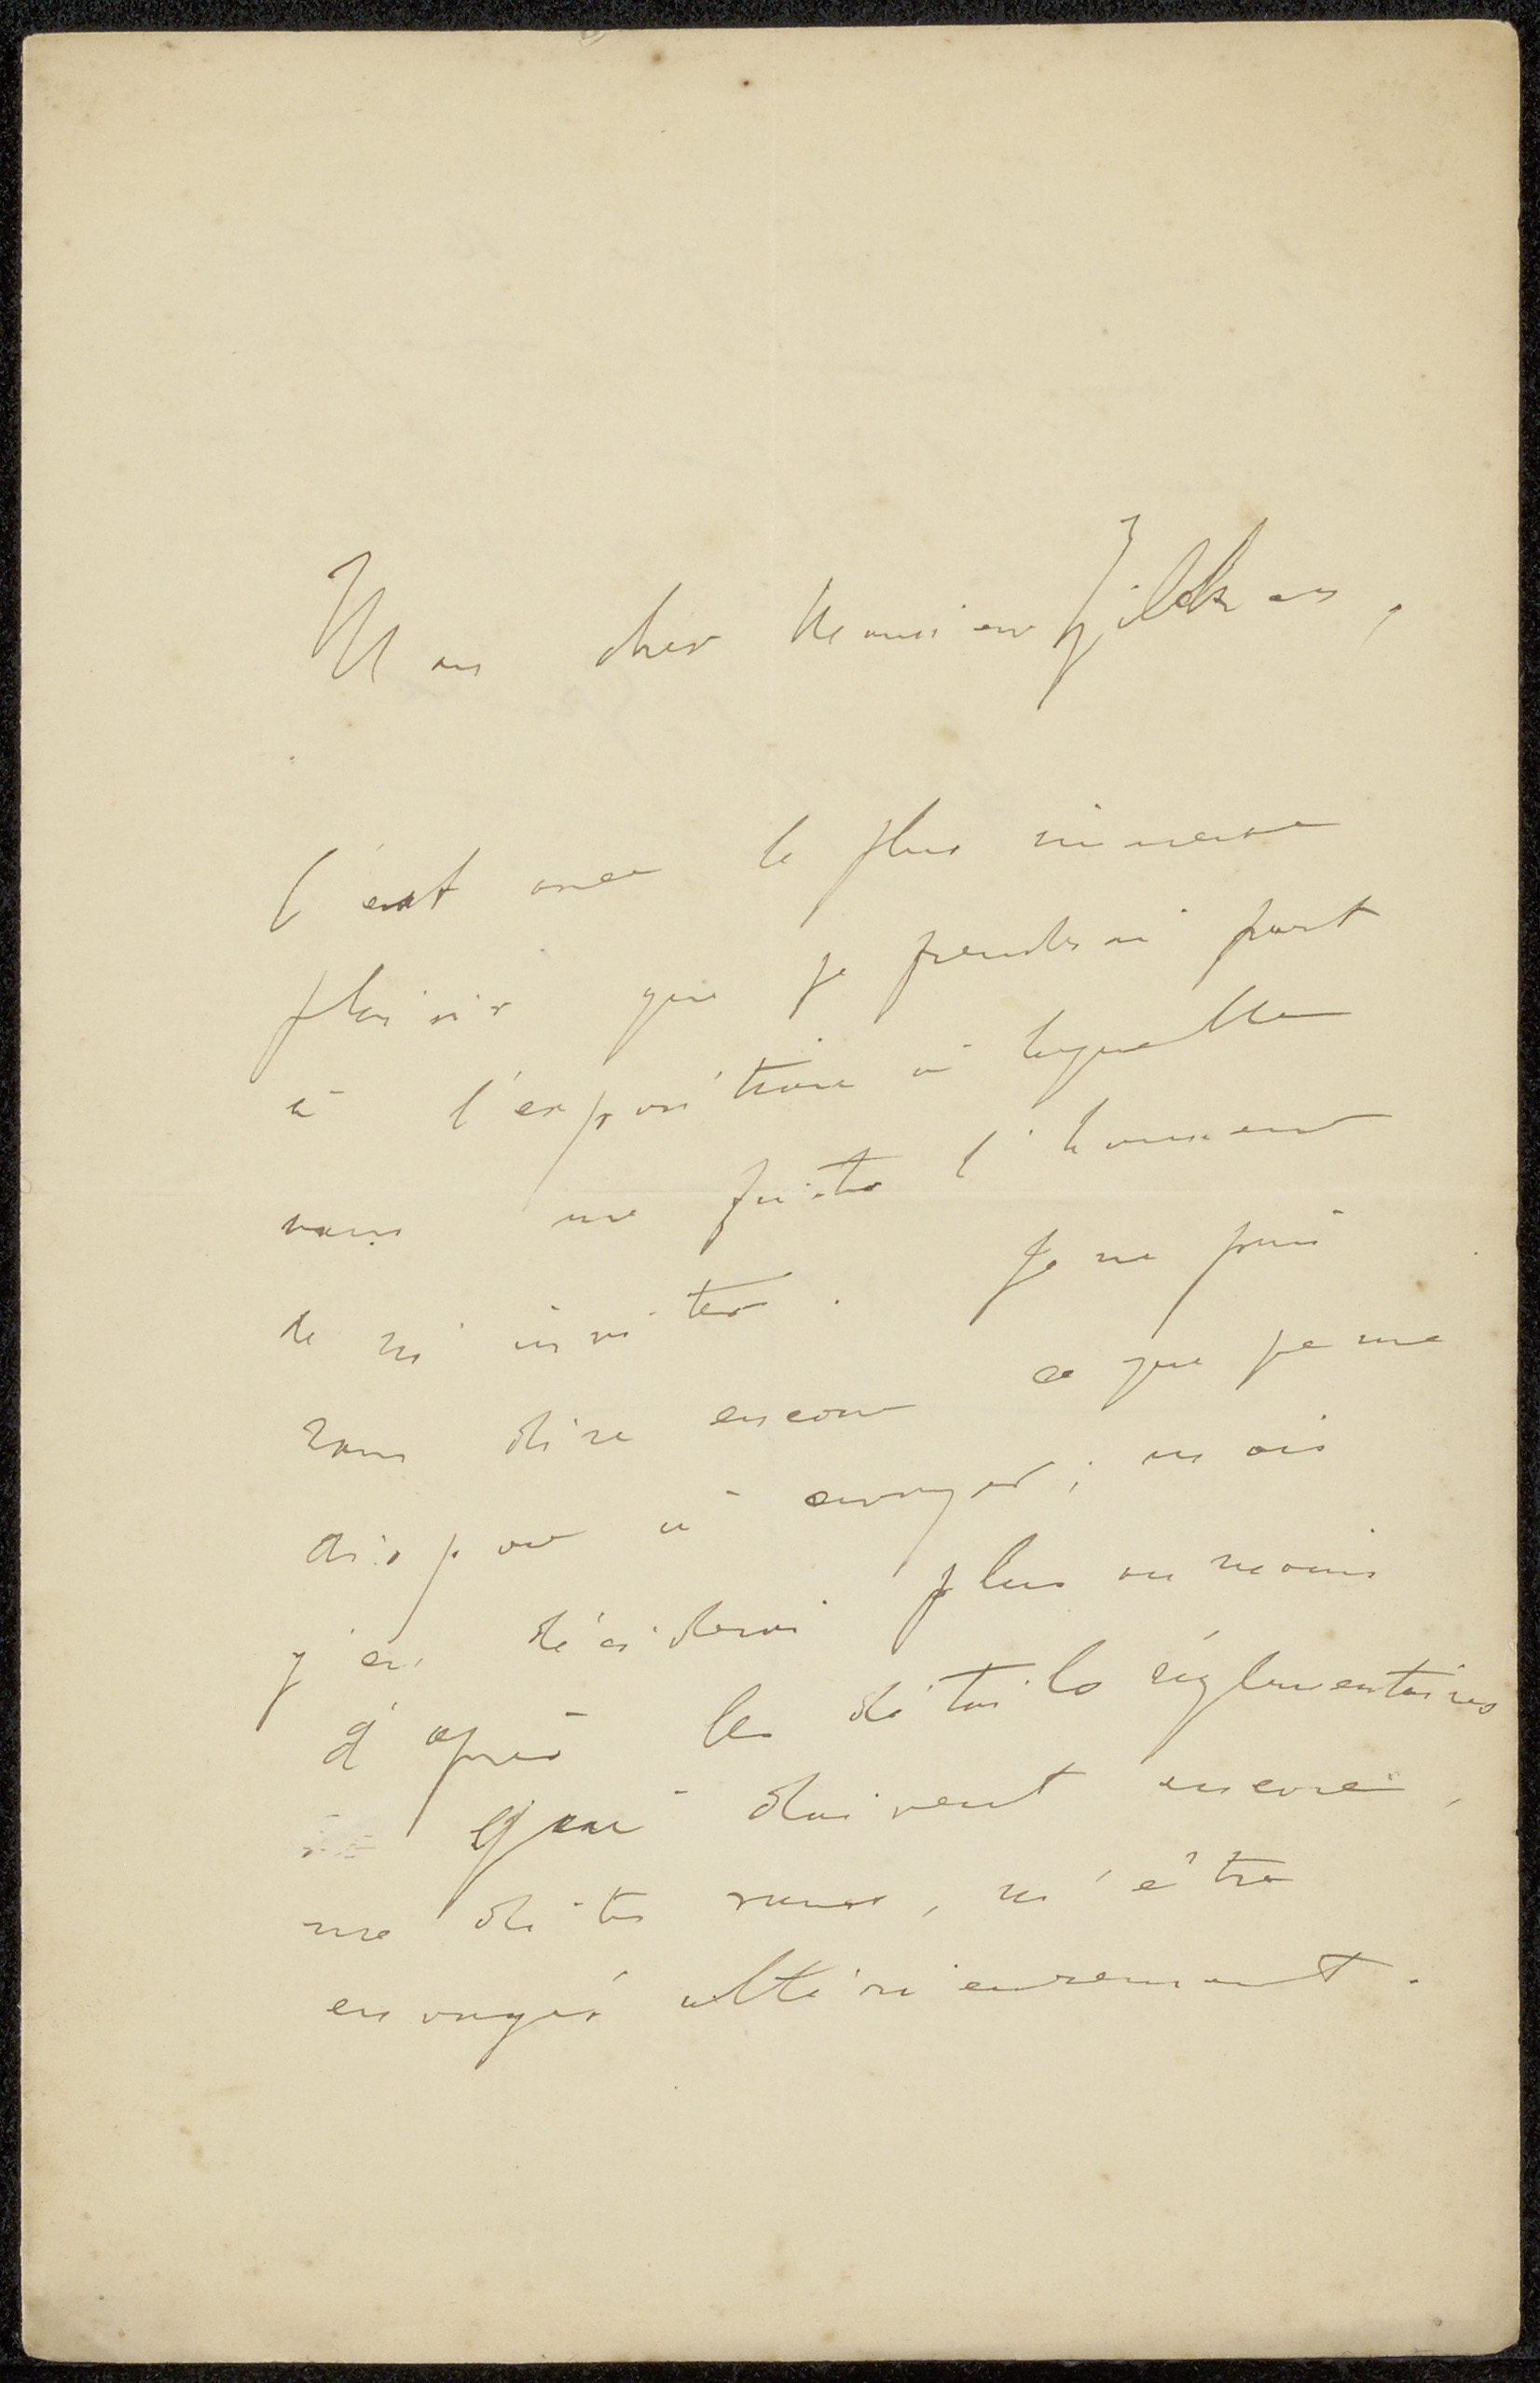 Mon cher Monsieur Zilcken,
C'est avec le plus immense
plaisir que je prendrai part
à l'exposition à laquelle
vous me faites l'honneur
de m'inviter. Je ne puis
vous dire encore ce que je me
dispose à envoyer; mais
j'en déciderai plus ou moins
d'après les détails réglementaires
qui doivent encore,
me dites vous, m'être
envoyés ultérieurement.